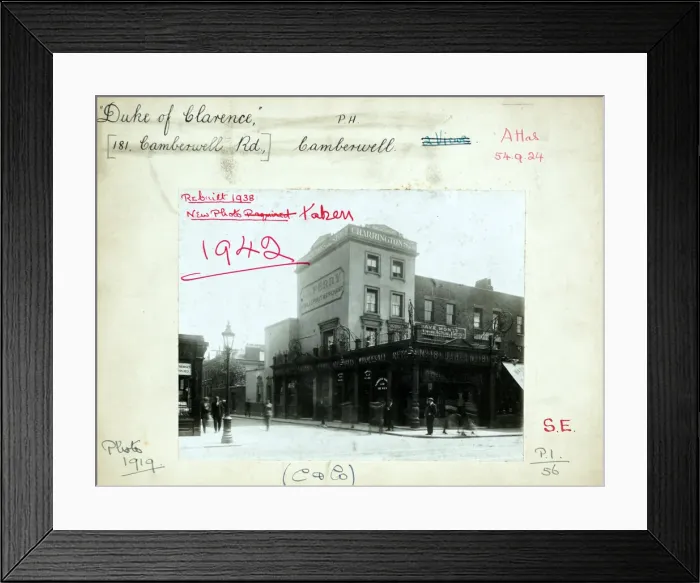 "Duke of Clarence,"
PH
[181, Camberwell Rd,] Camberwell.
2 Views
Atlas
54.9.24
Rebuilt 1938
New Photo Required Taken
1942
CHARRINGTON
TERRY
S.E.
Photo
1919
P.1.
56
(C & Co)